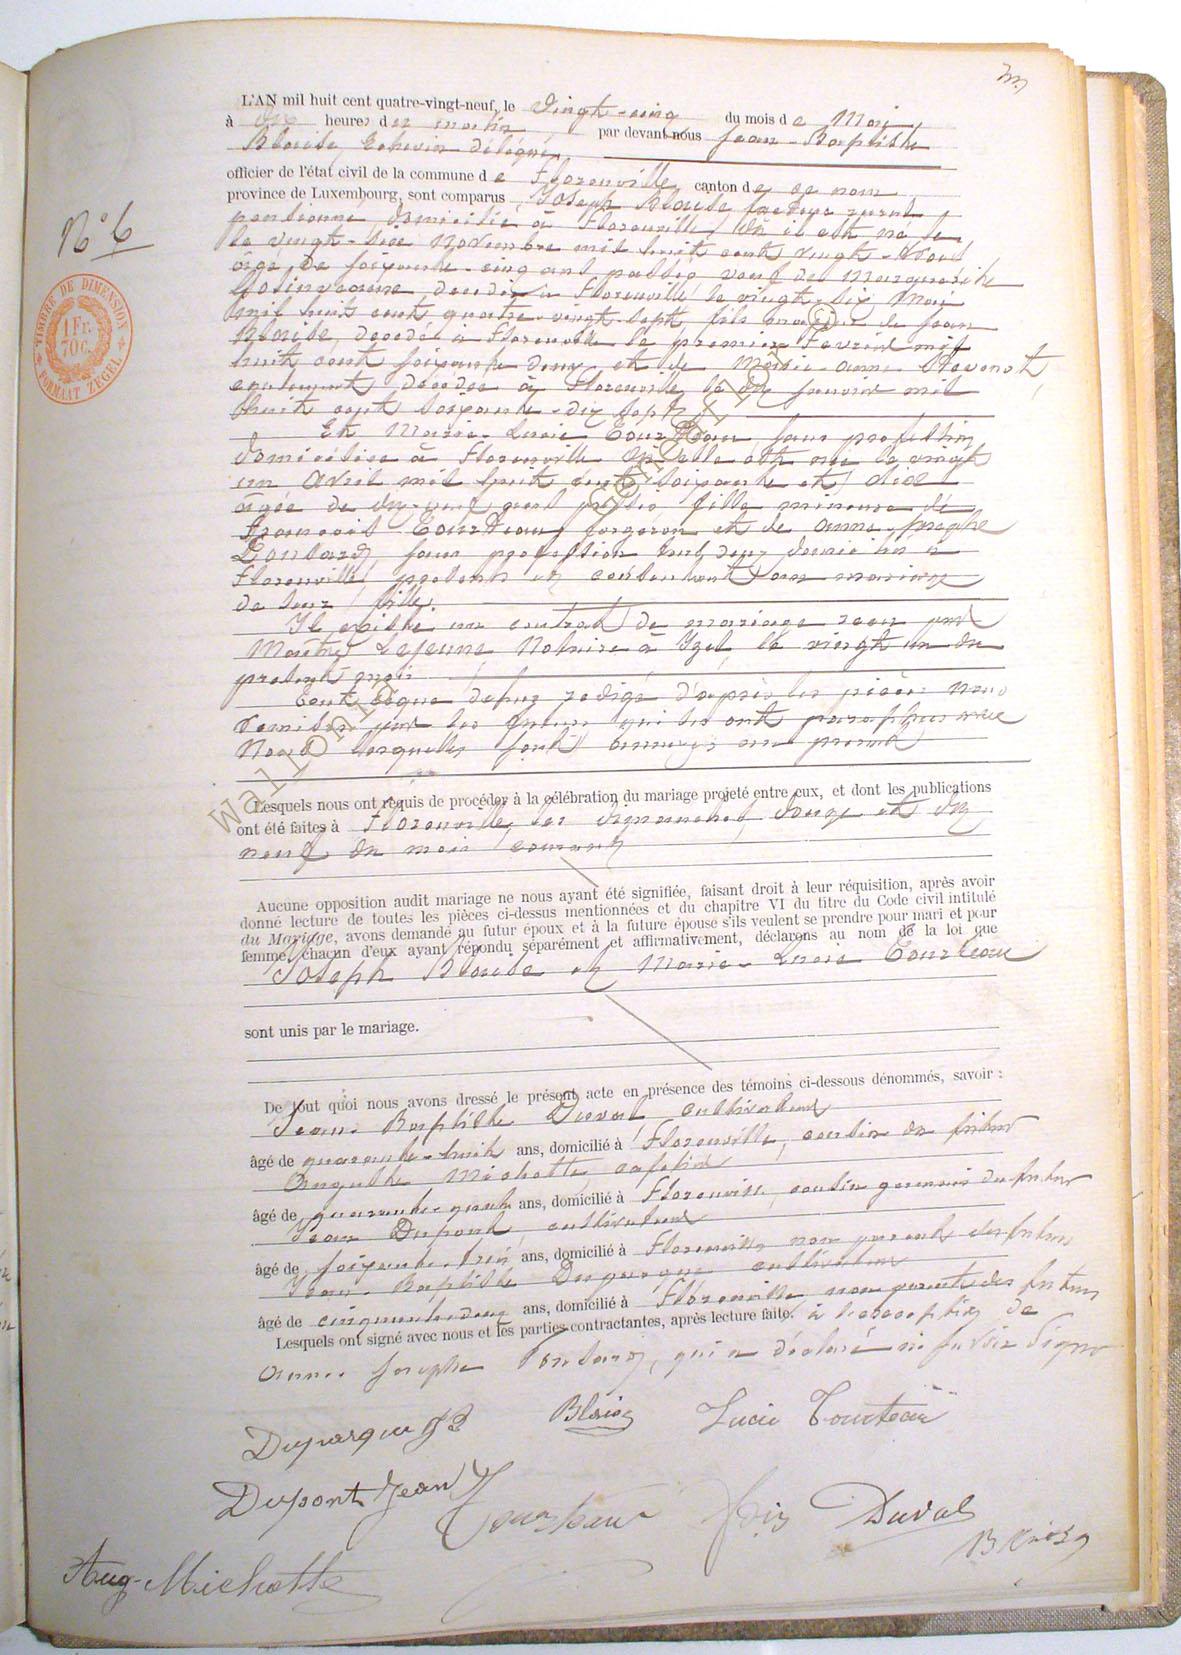 L'AN mil huit cent quatre-vingt-neuf, le vingt-cinq du mois de Mai,
à dix heures du matin par devant nous Jean-Baptiste
Blaise, Echevin délégué,
officier de l'état civil de la commune de Florenville, canton de ce nom
province de Luxembourg, sont comparus Joseph Blaise facteur rural
pensionné domicilié à Florenville où il est né le
N° 6
le vingt-six Novembre mil huit cent vingt-trois
âgé de soixante-cinq ans passés veuf de Marguerite
décédée à Florenville le vingt-six Mai
mil huit cent quatre-vingt-sept, fils majeur de Jean
Blaise, décédé à Florenville le premier Février mil
huit cent soixante deux et de Marie-Anne
également décédée à Florenville le dix Janvier mil
huit cent soixante-dix sept
TIMBRE DE DIMENSION
1 Fr.
70 c.
FORMAAT ZEGEL
Et Marie-Lucie Tourteau sans profession
domiciliée à Florenville où elle est née le vingt
un Avril mil huit cent soixante et dix
âgée de dix-neuf ans passés, fille mineure de
François Tourteau forgeron et de Anne-Josephe
sans profession tous deux domiciliés à
Florenville présents et consentant au mariage
de leur fille.
Il existe un contrat de mariage reçu par
Maître Lejeune Notaire à Izel le vingt un du
présent mois
rédigé d'après les pièces nous
remises par les futurs qui les ont paraphées avec
Nous lesquelles sont annexées au présent
Lesquels nous ont requis de procéder à la célébration du mariage projeté entre eux, et dont les publications
ont été faites à Florenville, les dimanches douze et dix
neuf du mois courant
Aucune opposition audit mariage ne nous ayant été signifiée, faisant droit à leur réquisition, après avoir
donné lecture de toutes les pièces ci-dessus mentionnées et du chapitre VI du titre du Code civil intitulé
du Mariage, avons demandé au futur époux et à la future épouse s'ils veulent se prendre pour mari et pour
femme, chacun d'eux ayant répondu séparément et affirmativement, déclarons au nom de la loi que
Joseph Blaise et Marie-Lucie Tourteau
sont unis par le mariage.
De tout quoi nous avons dressé le présent acte en présence des témoins ci-dessous dénommés, savoir :
Jean-Baptiste Duval cultivateur
âgé de quarante-huit ans, domicilié à Florenville, cousin du futur
Auguste Michotte, cafetier
âgé de quarante-quatre ans, domicilié à Florenville, cousin germain du futur
Jean Dupont, cultivateur
âgé de soixante-trois ans, domicilié à Florenville non parent des futurs
Jean-Baptiste Duparque cultivateur
âgé de cinquante-deux ans, domicilié à Florenville non parent des futurs
Lesquels ont signé avec nous et les parties contractantes, après lecture faite, à l'exception de
Anne Josephe qui a déclaré ne savoir signer
Duparque JB Blaise Lucie Tourteau
Dupont Jean Tourteau Duval
Aug. Michotte
wallonie